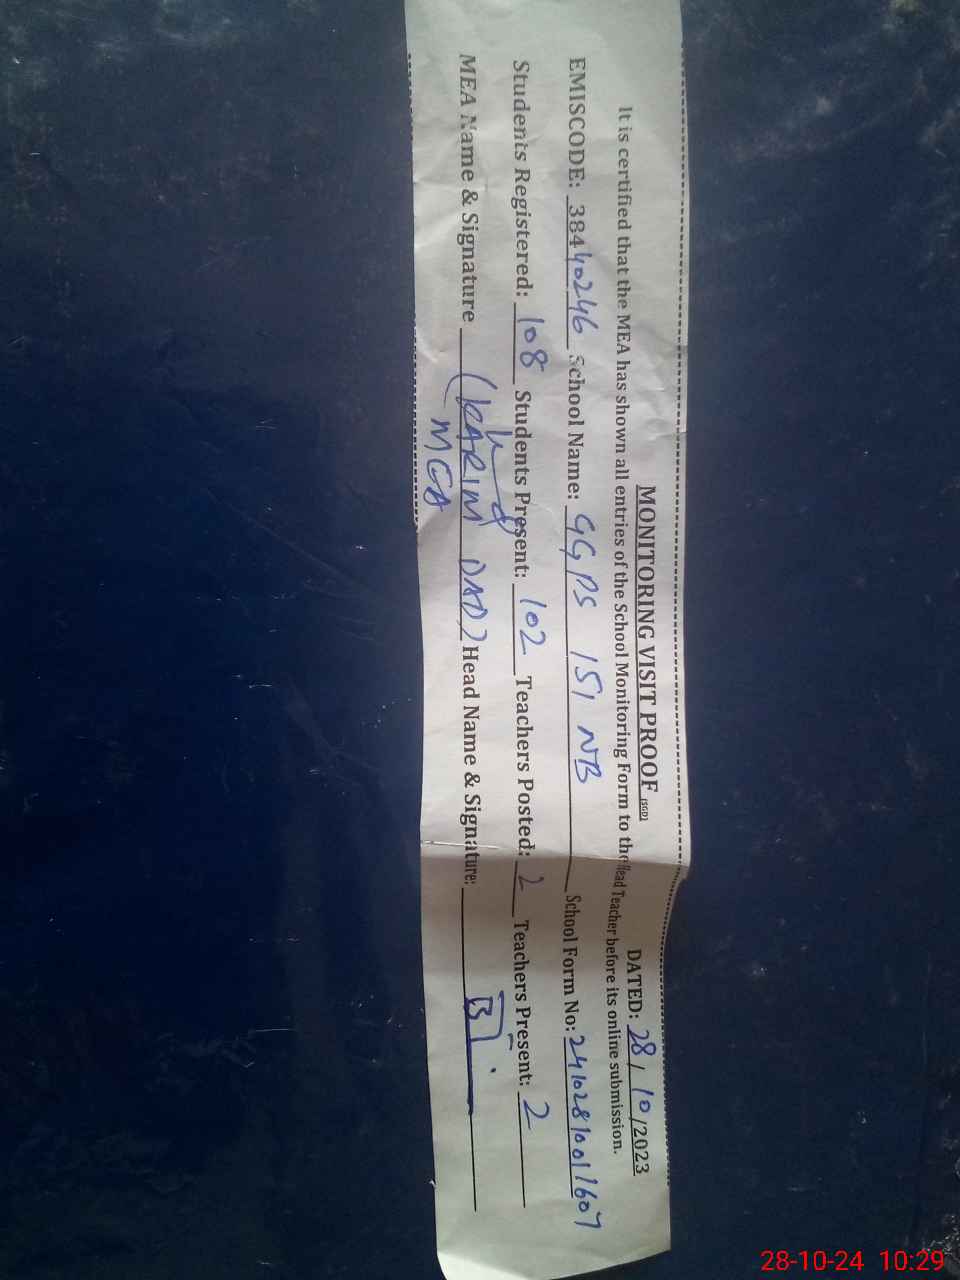 MONITORING VISIT PROOF (SGD) DATED: 28/10/2023
It is certified that the MEA has shown all entries of the School Monitoring Form to the Head Teacher before its online submission.
EMISCODE: 38440246 School Name: GGPS 151 NB School Form No: 24102810011607
Students Registered: 108 Students Present: 102 Teachers Posted: 2 Teachers Present: 2
MEA Name & Signature (KARIM DAD) Head Name & Signature:
MEA
28-10-24 10:29